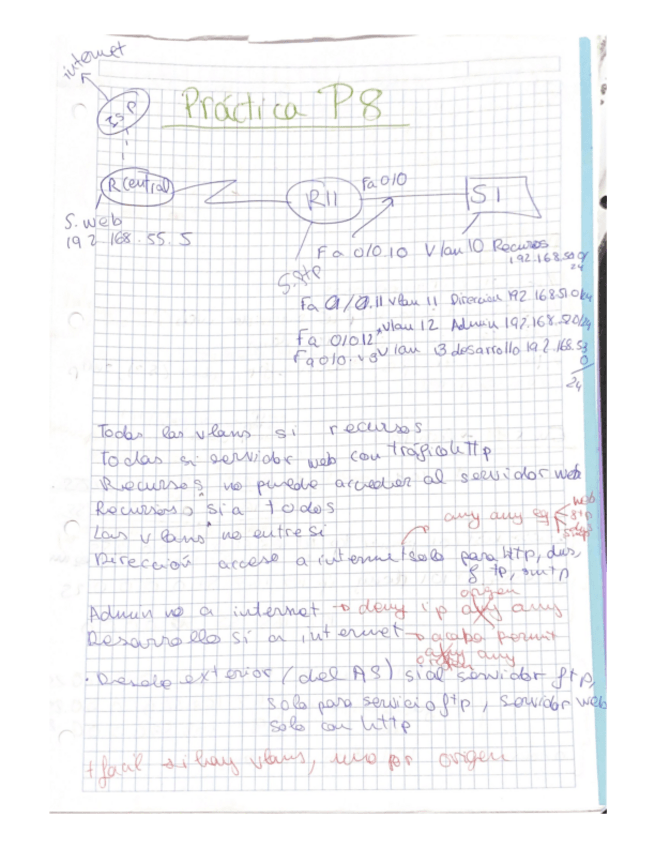 internet
ISP
Práctica P8
R Central
R11
Fa 0/0
S1
S. web
192.168.55.5
S. ftp
Fa 0/0.10 Vlan 10 Recursos
192.168.50.0/
24
Fa 0/0.11 vlan 11 Dirección 192.168.51.0/24
Fa 0/0.12 vlan 12 Admin 192.168.52.0/24
Fa 0/0.13 Vlan 13 desarrollo 192.168.53
0
/
24
Todas las vlans si recursos
Todas si servidor web con tráfico http
Recursos no puede acceder al servidor web
Recursos si a todos
any any eq web
ftp
Las vlans no entre si
Dirección acceso a internet solo para http, dns,
ftp, smtp
origen
Admin no a internet → deny ip any any
Desarrollo Si a internet → acaba permit
any any
origen
· Desde exterior (del AS) si al servidor ftp,
solo para servicio ftp, servidor web
solo con http
+ facil si hay vlans, uno por origen